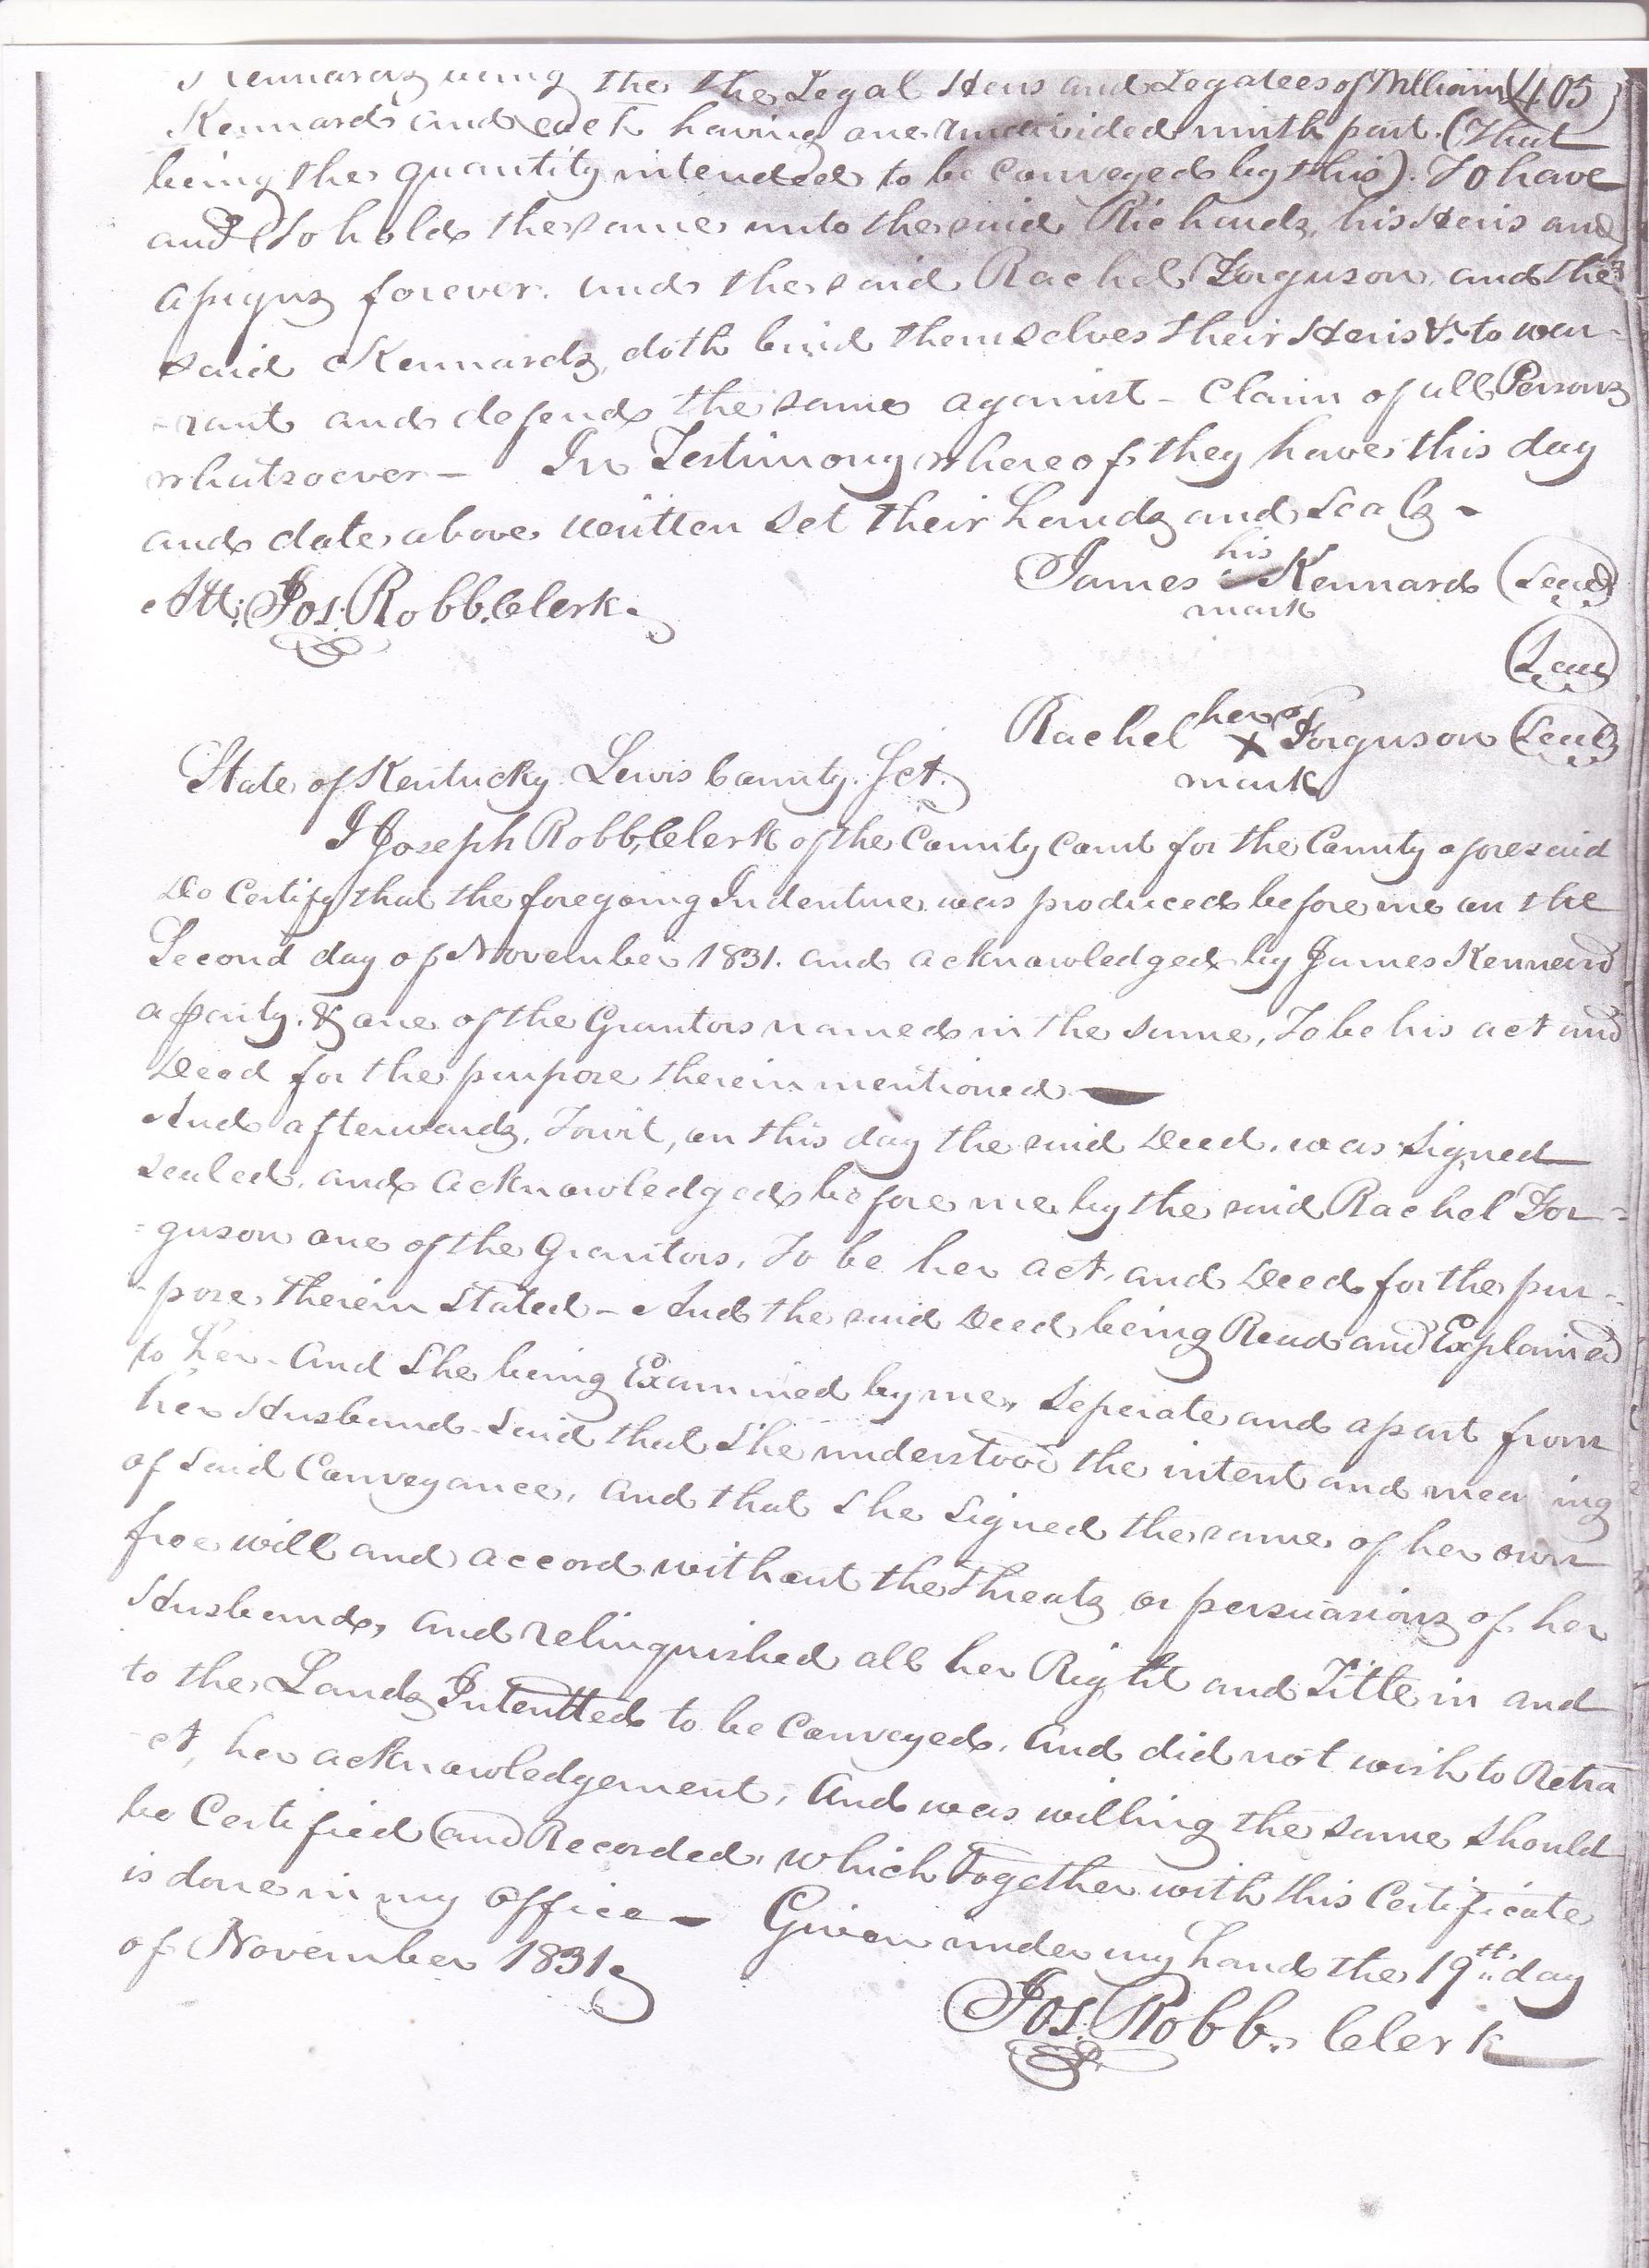 Kennards being the the Legal Heirs and Legatees of William (405)
Kennard and each having one undivided ninth part. (That
being the quantity intended to be conveyed by this). To have
and to hold the same unto the said Richards, his Heirs and
assigns forever. and the said Rachel Forguson and the
said Kennards, doth bind themselves their Heirs &c to war-
-rant and defend the same against - Claim of all Persons
whatsoever - In Testimony whereof they have this day
and date above written set their hands and seals -
his
Att: Jos. Robb. Clerk. James Kennard (Seal)
mark
(Seal)
her
Rachel X Forguson (Seal)
mark
State of Kentucky Lewis County. Sct.
I Joseph Robb, Clerk of the County Court for the County aforesaid
Do Certify that the foregoing Indenture was produced before me on the
Second day of November 1831. and acknowledged by James Kennard
a party. & one of the Grantors named in the same, To be his act and
Deed for the purpose therein mentioned
And afterwards, Towit, on this day the said Deed. was Signed
sealed, and acknowledged before me by the said Rachel For=
=guson one of the Grantors, To be her act, and Deed for the pur-
-pose, therein stated - And the said Deed, being Read and Explained
to her. And She being Examined by me, Seperate and apart from
her Husband. Said that She understood the intent and meaning
of said Conveyance, and that She Signed the same of her own
free will and accord without the threats or persuasions of her
Husband, and relinquished all her Right and Title in and
to the Lands Intentted to be Conveyed, and did not wish to Retra
-ct, her acknowledgement, And was willing the same should
be Certified and Recorded, which Together with this Certificate
is done in my office - Given under my hand the 19th day
of November 1831
Jos. Robb. Clerk